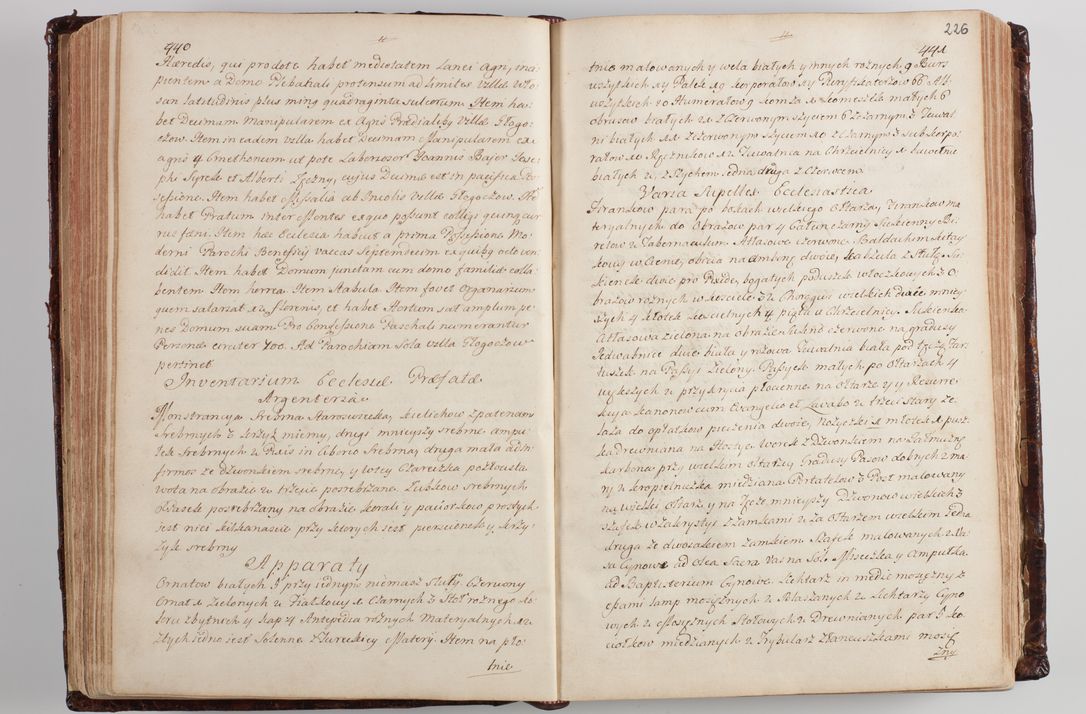 440
Hæredis, que pro dote habet medietatem Lanei Agri, inci
pientem a Domo Plebanali protensum ad Limites Villæ Wło
san latitudinis plus minq quadraginta sulcorum Item ha
bet Decimam Manipularem ex Agris Prædialibq Villæ Głogo
czow. Item in eadem villa habet Decimam Manipularem ex
agris 4 Cmethonum ut pote Laboriosor Joannis Bajer Jose
phi Syrek et Alberti Zęczny, cujus Decimæ est in pacifica Po
sessione. Item habet Missalia ab Incolis Villæ Głogoczow. Ite
habet Pratum inter Montes ex quo possunt colligi quinq cur
rus fæni. Item hæc Ecclesia habuit a prima Possessione Mo
derni Parochi Beneficij vaccas Septemdecim ex quibq octo ven
didit Item habet Domum junctam cum domo familiæ colla
bentem Item horrea Item Stabula Item fovet Organarium
quem salariat 12 Florenis, et habet Hortum satis amplum pe
nes Domum suam Pro Confessione Paschali numerantur
Personæ circiter 700. Ad Parochiam Sola Villa Głogoczow
pertinet
Inventarium Ecclesiæ Præfatæ
Argenteria
Monstrancya Srebrna Staroswiecka, kielichow z patenami
Srebrnych 3 krzyz mierny, drugi mnieyszy srebrne ampu
łek Srebrnych 2 Puszis in Ciborio Srebrna, druga mała ad in
firmos ze dzwonkiem srebrne, y wtey Czareczka pozłocista
wota na obrazie 2 trzecie posrebrzane. Ząbkow srebrnych
Pasek posrebrzany na obrazie korali y paciorkow prostych
jest nici kilkanascie przy ktorych jest pierscionek y krzy
zyk srebrny
Apparaty
Ornatow białych 9 przy iednym niemasz stuły Czerwony
Ornat 1 Zielonych 2 Fiałkowy 1 Czarnych 3 Stoł roznego ko
loru zbytnich 4 Kap 4 Antepedia roznych Materyalnych 12
Ztych jedno jest Solenne z Tureckiey Materyi Item na pło
tnie
226
441
tnie malowanych y wela białych y innych roznych 9 Burs
wszytkich 14 Palek 19 Korporałow 14 Puryfikaterzow 66 Alb
wszytkich 20 Humerałow 9 Komza 1 Komeszek małych 6
obrusow białych 21 z Czerwonym szyciem 6 z Czarnym 3 Tuwal
ni białych 11 z Czerwonym szyciem 10 z Czarnym 3 subkorpo
rałow 10 Ręcznikow 12 Tuwalnia na Chrzcielnicy 1 kawełne
białych 2 z Szychem jedna druga z Czerwonem
Varia Supellex Ecclesiastica
Firankow para po bokach wielkiego Ołtarza, Firankow ma
teryalnych do Obrazow par 4 Całun czarny Sukienny Bi
retow 2 Tabernaculum Atłasowe czerwone. Baldachim Kitay
kowy w Cienie, obicia na ambonę dwoie, Kabzula z Stułą Su
kienek dwie pro Pixide, bogatych poduszek włoczkowych 3 O
brazow roznych w kosciele 32 Choręgwi wielkich dwie mniey
szych 4 ławek Koscielnych 4 piąta u Chrzcielnicy. Sukienka
Atłasowa zielona na obrazie Kusno czerwone na gradusy
Jedwabnice dwie biała y rozowa Tuwalnia biała pod tęczą Far
tuszek na Passyi zielony Passyek małych po Ołtarzach 4
większych 2 przykrycia płocienne na Ołtarze 2 y Resurre
kcya Kanonow cum Evangelio et Lavabo 2 trzeci stary Ze
laza do opłatkow pieczenia dwoie, Nozyczki 1 młotek 1 pusz
ka drewniana na Hostye Worek z Dzwonkiem na Jałmuzne
Skarbona przy wielkim Ołtarzu Gradusy Pasow dobnych 2 ma
ny 2 kropielniczka miedziana Portatelow 3 Post malowany
na wielki Ołtarz y na Tęcze mnieyszy Dzwonow wielkich 3
Szafek w Zakrystyi z Zamkami 2 Za Ołtarzem wielkim jedna
druga ze dwoiakiem Zamkiem Szafek malowanych 2 Va
sa Cynowe ad Olea Sacra Vas na Sol. Miseczka y Ampułka
ad Baptisterium Cynowe. Lichtarz in medio mosięzny z
cpami lamp mosięznych 2 Blaszanych 2 Lichtarzy Cyno
wych 2 Mosięznych Stołowych 2 Drewnianych par 5 ko
ciołkow miedzianych 2 Trybularz z łancuszkami mosię
zny